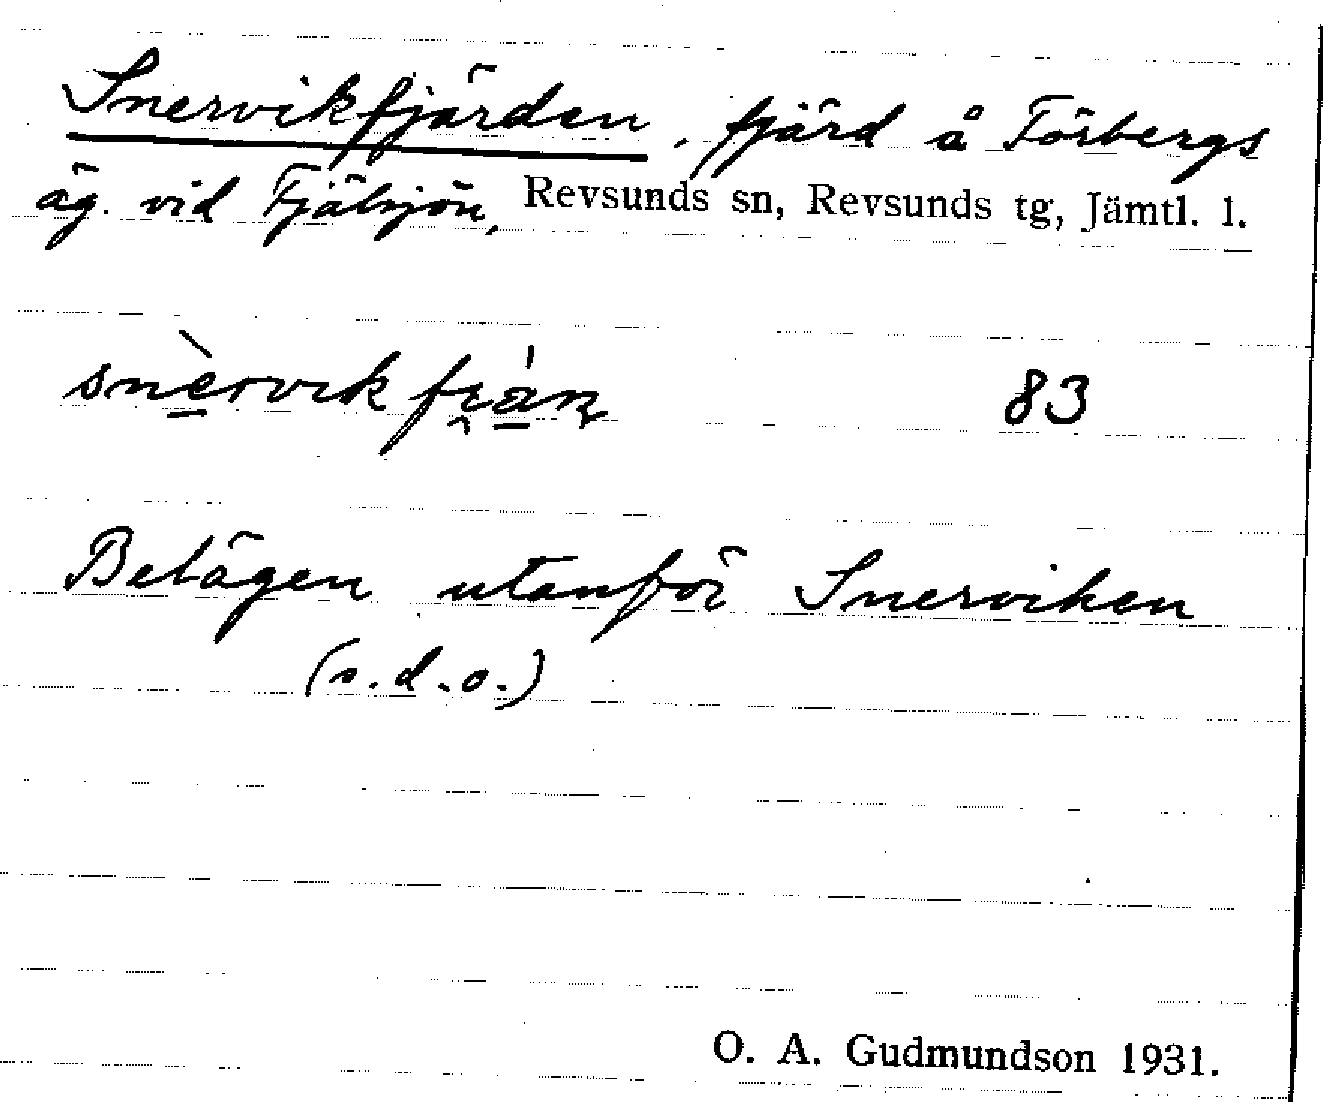 Snervikfjärden, fjärd å Torbergs
äg. vid Fjälsjön, Revsunds sn, Revsunds tg, Jämtl. l.
83
Belägen utanför Snerviken
(s.d.o.)
O. A. Gudmundson 1931.